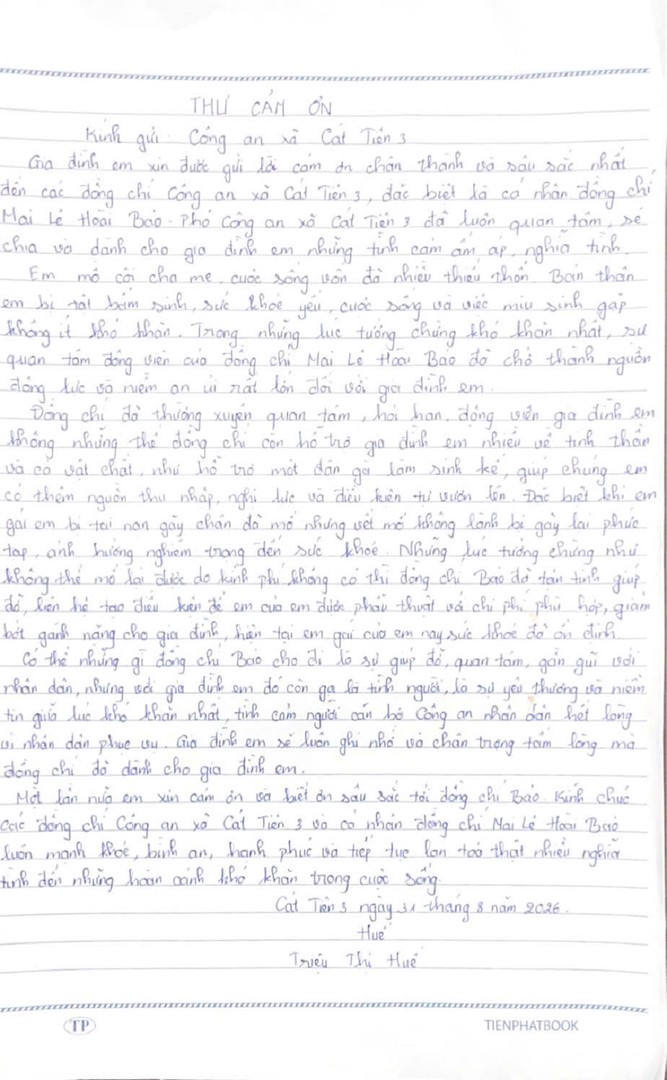 THƯ CẢM ƠN
Kính gửi: Công an xã Cát Tiên 3
Gia đình em xin được gửi lời cảm ơn chân thành và sâu sắc nhất
đến các đồng chí Công an xã Cát Tiên 3, đặc biệt là cá nhân đồng chí
Mai Lê Hoài Bảo - Phó Công an xã Cát Tiên 3 đã luôn quan tâm, sẻ
chia và dành cho gia đình em những tình cảm ấm áp, nghĩa tình.
Em mồ côi cha mẹ, cuộc sống vốn đã nhiều thiếu thốn. Bản thân
em bị tật bẩm sinh, sức khoẻ yếu, cuộc sống và việc miu sinh gặp
không ít khó khăn. Trong những lúc tưởng chừng khó khăn nhất, sự
quan tâm động viên của đồng chí Mai Lê Hoài Bảo đã chở thành nguồn
động lực và niềm an ủi rất lớn đối với gia đình em.
Đồng chí đã thường xuyên quan tâm, hỏi han, động viên gia đình em
không những thế đồng chí còn hỗ trợ gia đình em nhiều về tinh thần
và cả vật chất, như hỗ trợ một đàn gà làm sinh kế, giúp chúng em
có thêm nguồn thu nhập, nghị lực và điều kiện tự vươn lên. Đặc biệt khi em
gái em bị tai nạn gãy chân đã mổ nhưng vết mổ không lành bị gãy lại phức
tạp, ảnh hưởng nghiêm trọng đến sức khoẻ. Những lúc tưởng chừng như
không thể mổ lại được do kinh phí không có thì đồng chí Bảo đã tận tình giúp
đỡ, liên hệ tạo điều kiện để em của em được phẫu thuật với chi phí phù hợp, giảm
bớt gánh nặng cho gia đình, hiện tại em gái của em nay sức khoẻ đã ổn định.
Có thể những gì đồng chí Bảo cho đi là sự giúp đỡ, quan tâm, gần gũi với
nhân dân, nhưng với gia đình em đó còn là tình người, là sự yêu thương và niềm
tin giữa lúc khó khăn nhất, tình cảm người cán bộ Công an nhân dân hết lòng
vì nhân dân phục vụ. Gia đình em sẽ luôn ghi nhớ và chân trọng tấm lòng mà
đồng chí đã dành cho gia đình em.
Một lần nữa em xin cảm ơn và biết ơn sâu sắc tới đồng chí Bảo. Kính chúc
các đồng chí Công an xã Cát Tiên 3 và cá nhân đồng chí Mai Lê Hoài Bảo
luôn mạnh khoẻ, bình an, hạnh phúc và tiếp tục lan toả thật nhiều nghĩa
tình đến những hoàn cảnh khó khăn trong cuộc sống.
Cát Tiên 3 ngày 31 tháng 8 năm 2026.
Huế
Triệu Thị Huế
TP TIENPHATBOOK